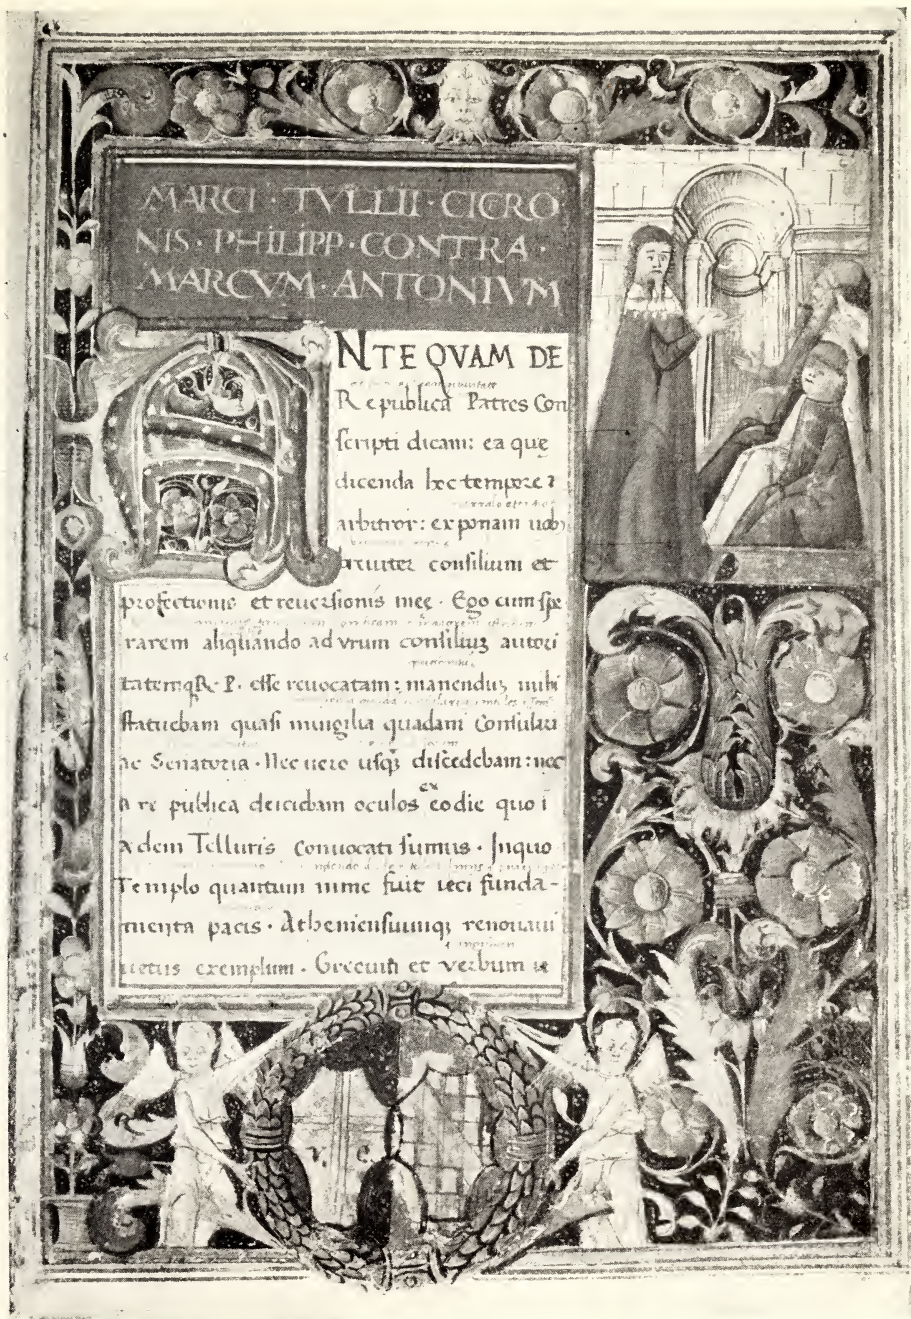 MARCI · TVLLII · CICERO
NIS · PHILIPP · CONTRA ·
MARCVM · ANTONIVM
ANTE QVAM DE
Re publica Patres Con
scripti dicam: ea que
dicenda hec tempore
arbitror: exponam uob
breuiter consilium et
profectionis et reuersionis meę · Ego cum spe
rarem aliquando ad vrum consiliuȝ autori
tatemqȝ R · P · esse reuocatam: manenduȝ mihi
statuebam quasi in uigilia quadam Consulari
ac Senatoria · Nec uero usqȝ discedebam: nec
A re publica deiciebam oculos ex eo die quo i
Adem Telluris conuocati sumus · Inquo
Templo quantum in me fuit ieci funda-
menta pacis · Atheniensiumqȝ renouaui
uetus exemplum · Grecum et verbum
V. C.